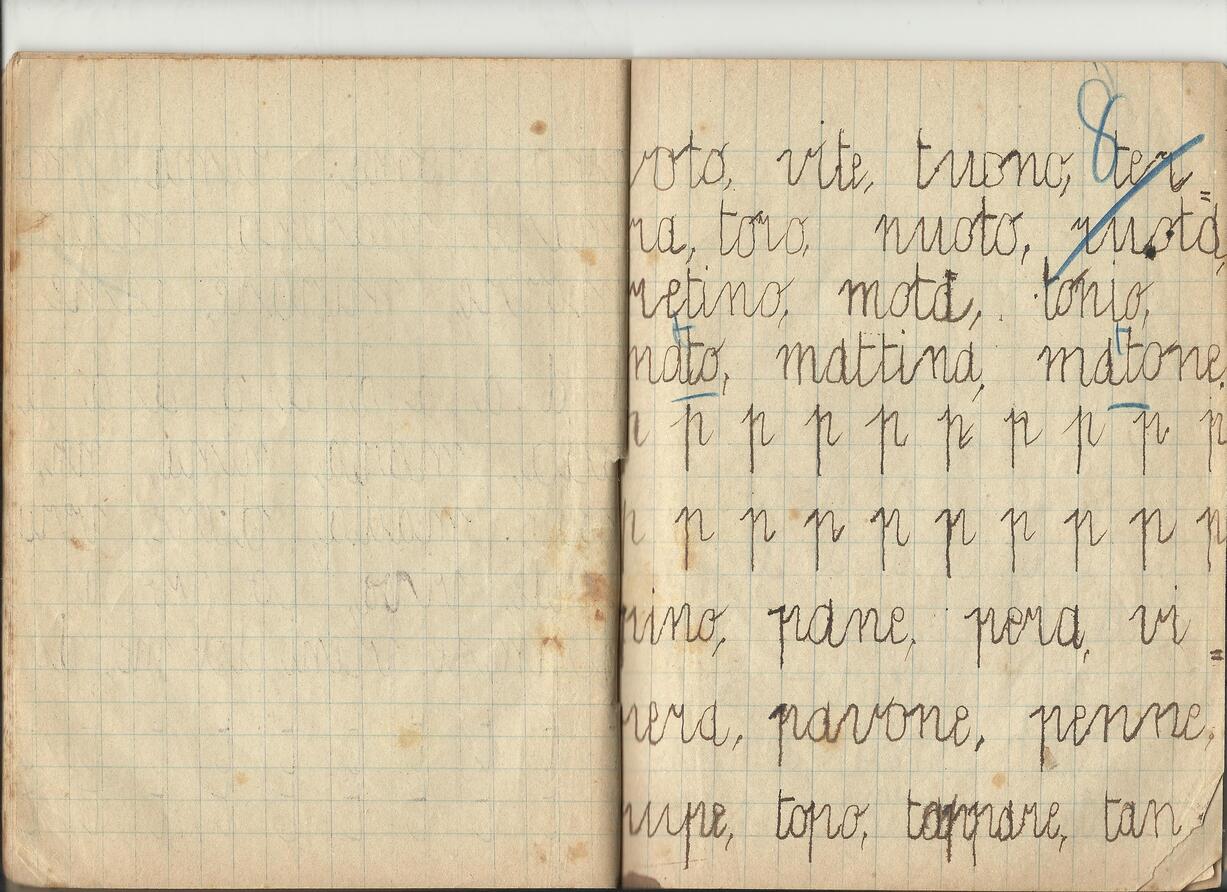 8
voto, vite, tuono, ter=
ra, toro, nuoto, ruota,
retino, mota, tonio,
mato, mattina, matone,
p p p p p p p p p p
p p p p p p p p p p
pino, pane, pera, vi=
pera, pavone, penne,
rupe, topo, tappare, tan